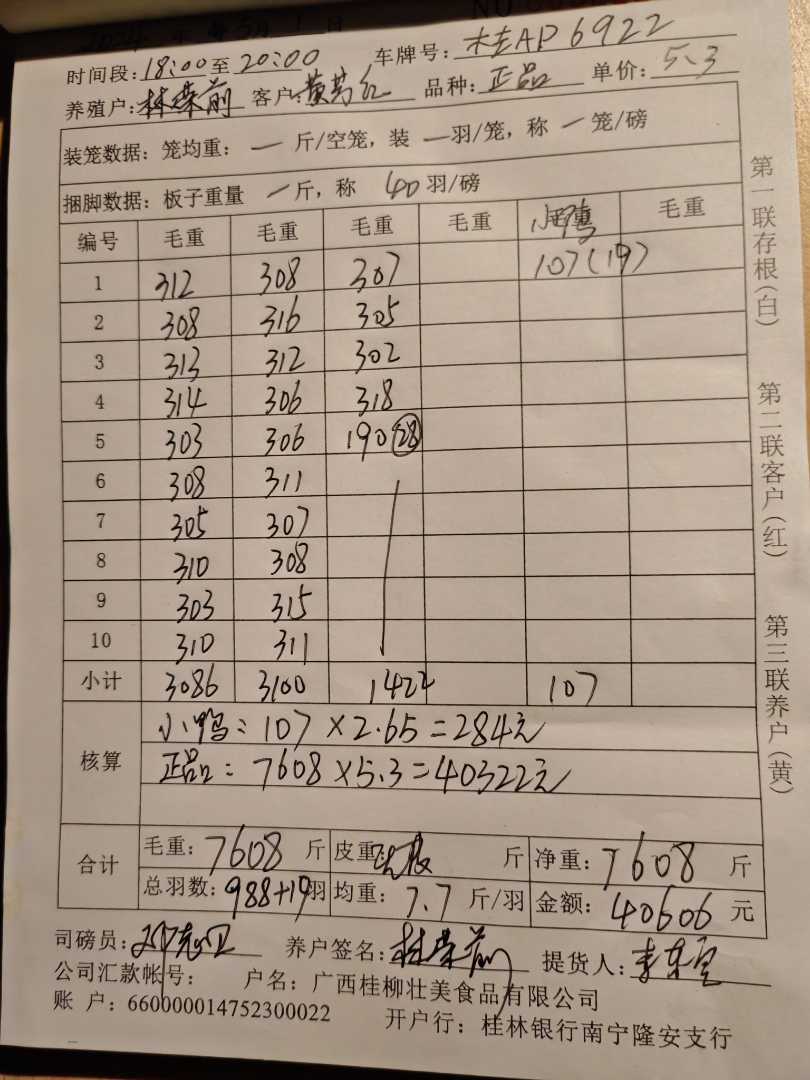 2024年 5月 1日 NO
时间段:18:00至20:00 车牌号:桂AP6922
养殖户:林荣前 客户:黄 品种:正品 单价:5.3
装笼数据:笼均重:一斤/空笼,装一羽/笼,称一笼/磅
捆脚数据:板子重量一斤,称40羽/磅
编号 毛重 毛重 毛重 毛重 小鸭 毛重
1 312 308 307 107(19)
2 308 316 305
3 313 312 302
4 314 306 318
5 303 306 190(28)
6 308 311
7 305 307
8 310 308
9 303 315
10 310 311
小计 3086 3100 1422 107
核算 小鸭:107×2.65=284元
正品:7608×5.3=40322元
合计 毛重:7608斤 皮重:斤 净重:7608斤
总羽数:988+19羽 均重:7.7斤/羽 金额:40606元
司磅员: 养户签名:林荣前 提货人:李
公司汇款帐号: 户名:广西桂柳壮美食品有限公司
账 户:660000014752300022 开户行:桂林银行南宁隆安支行
第一联存根(白) 第二联客户(红) 第三联养户(黄)